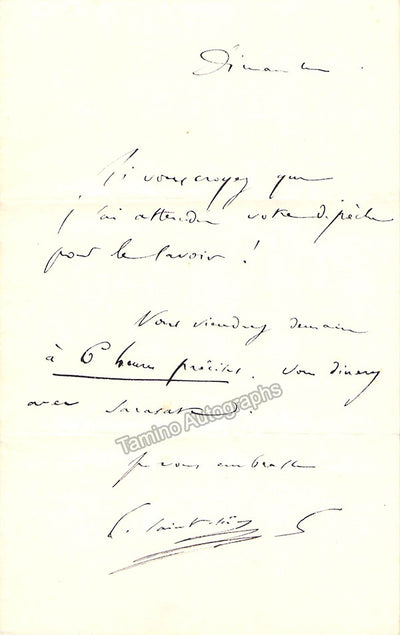 Dimanche
Si vous croyez que
j'ai attendu votre dépêche
pour le savoir !
Vous viendrez demain
à 6 heures précises. Vous dinerez
avec Sarasate.
Je vous embrasse
C. Saint-Saëns
Tamino Autographs